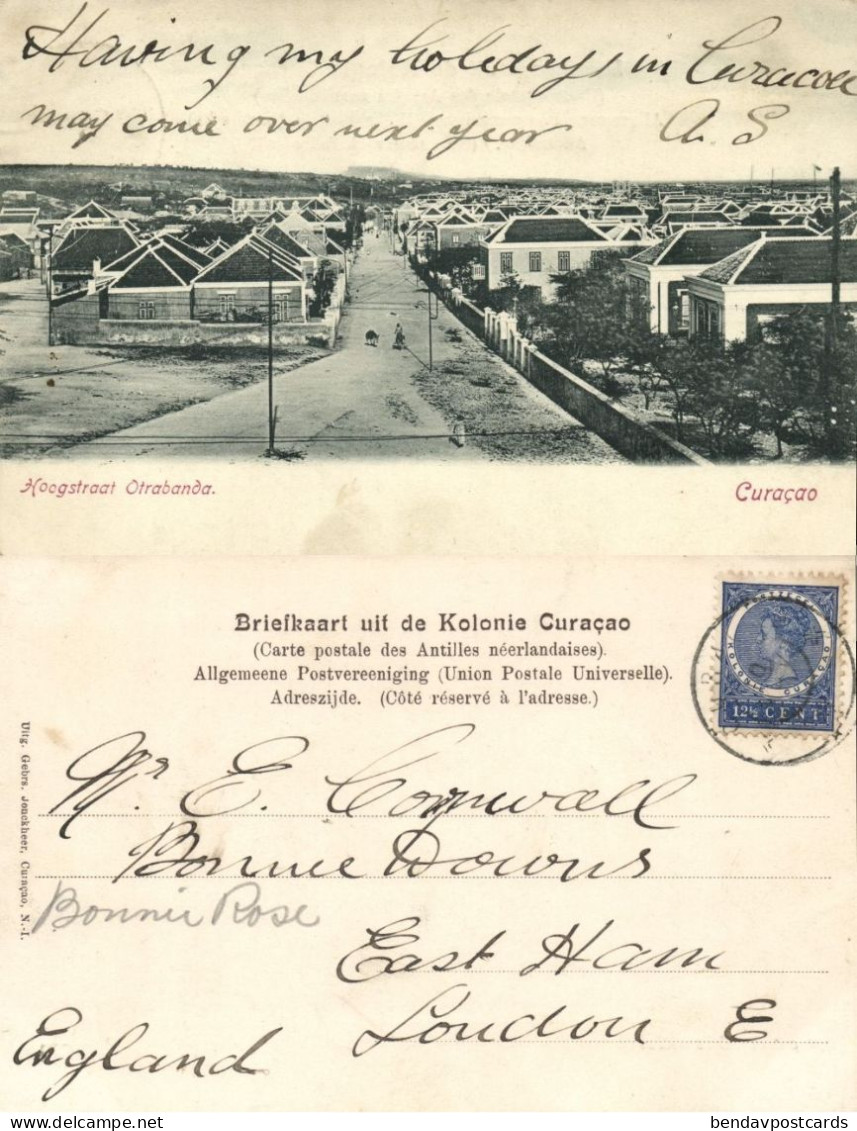 Having my holidays in Curacoa
may come over next year A. S
Hoogstraat Otrabanda.
Curaçao
Briefkaart uit de Kolonie Curaçao
(Carte postale des Antilles néerlandaises).
Allgemeene Postvereeniging (Union Postale Universelle).
Adreszijde. (Côté réservé à l'adresse.)
KOLONIE CURAÇAO
12½ CENT
Uitg. Gebrs. Jonckheer, Curaçao, N.-I.
Mr E. Cornwall
Bonnie Downs
Bonnie Rose
East Ham
London E
England
delcampe.net
bendavpostcards